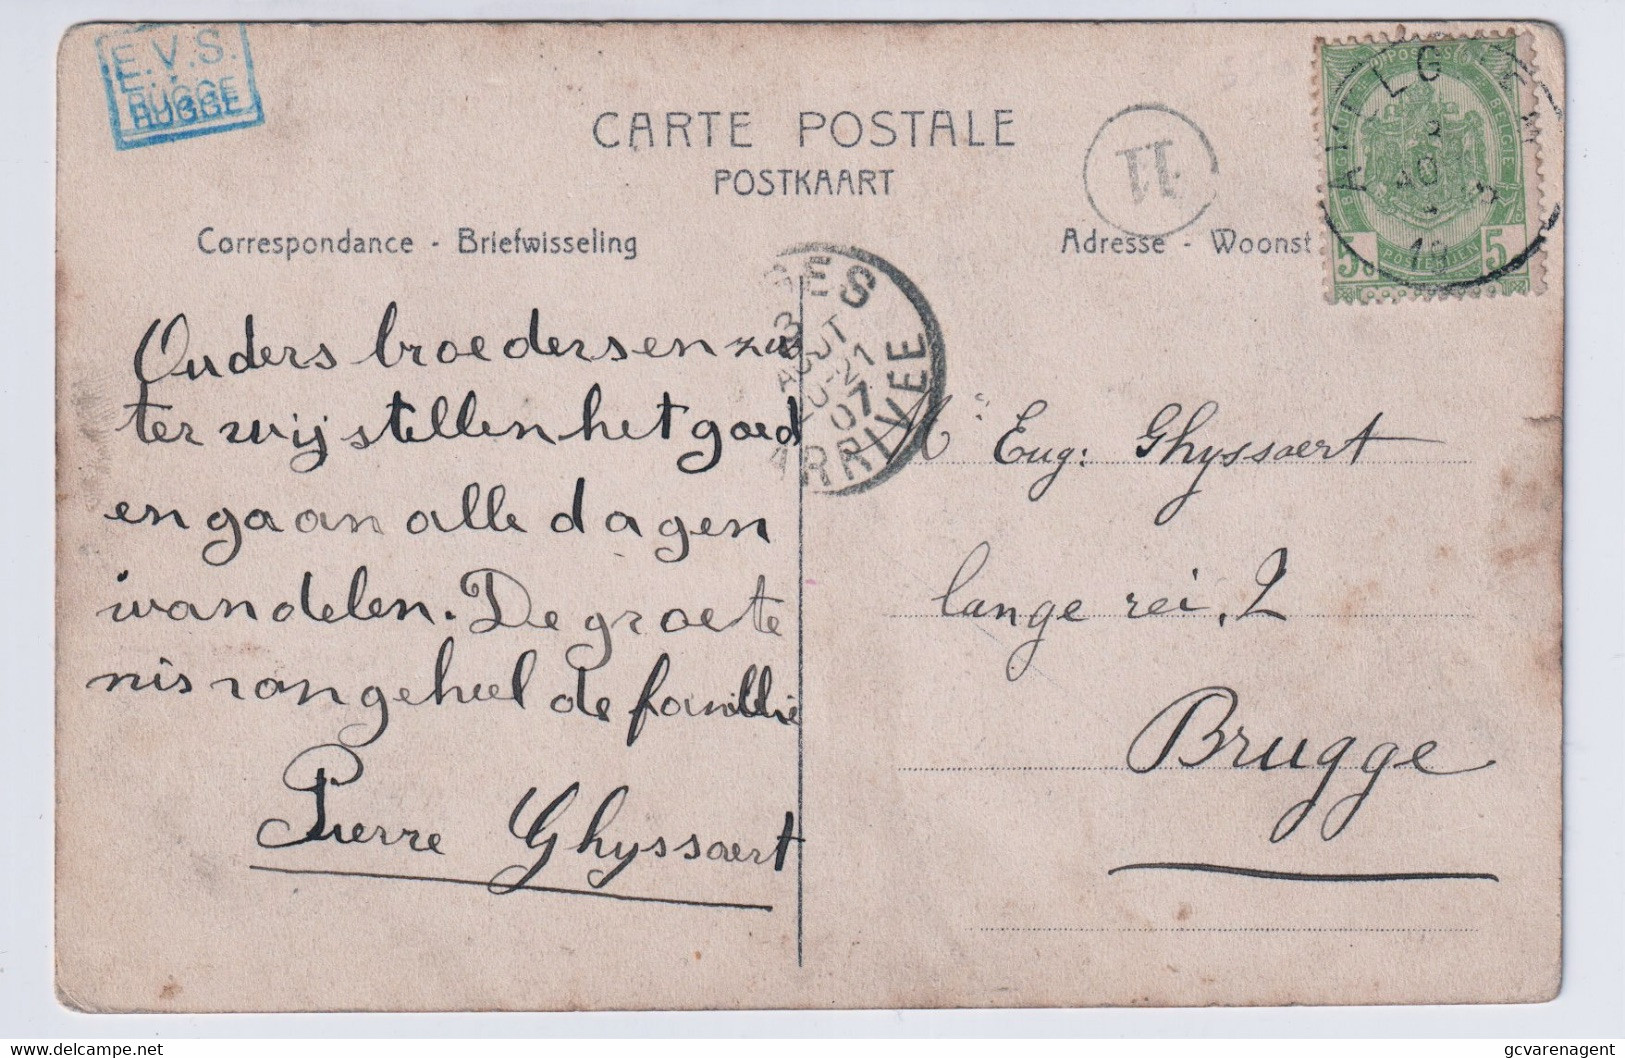 E.V.S.
BRUGGE
CARTE POSTALE
POSTKAART
Correspondance - Briefwisseling
Adresse - Woonst
11
POSTES
BELGIQUE
BELGIE
POSTERIJEN
5 5
3
AOUT
20-21
07
ARRIVEE
Ouders broedersen zus
ter wij stellen het goed
en gaan alle dagen
wandelen. De groete
nis van geheel de familie
Pierre Ghyssaert
Mr Eug: Ghyssaert
lange rei. 2
Brugge
gcvarenagent delcampe.net